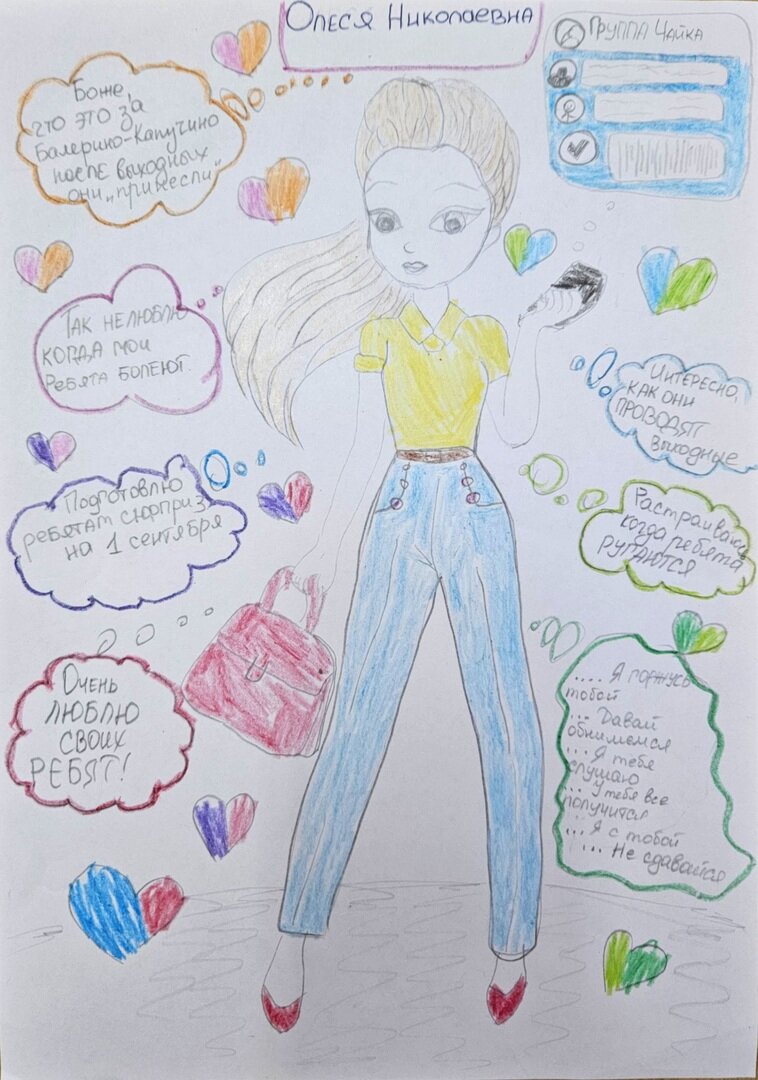 Олеся Николаевна
Группа Чайка
Боже,
что это за
Балерино-Капучино
после выходных
они "принесли"
Так не люблю
когда мои
ребята болеют.
Интересно,
как они
проводят
выходные
Подготовлю
ребятам сюрприз
на 1 сентября
Растраиваюсь
когда ребята
ругаются
Очень
люблю
своих
ребят!
.... Я горжусь
тобой
... Давай
обнимемся
... Я тебя
слушаю
... У тебя все
получится
... Я с тобой
.... Не сдавайся